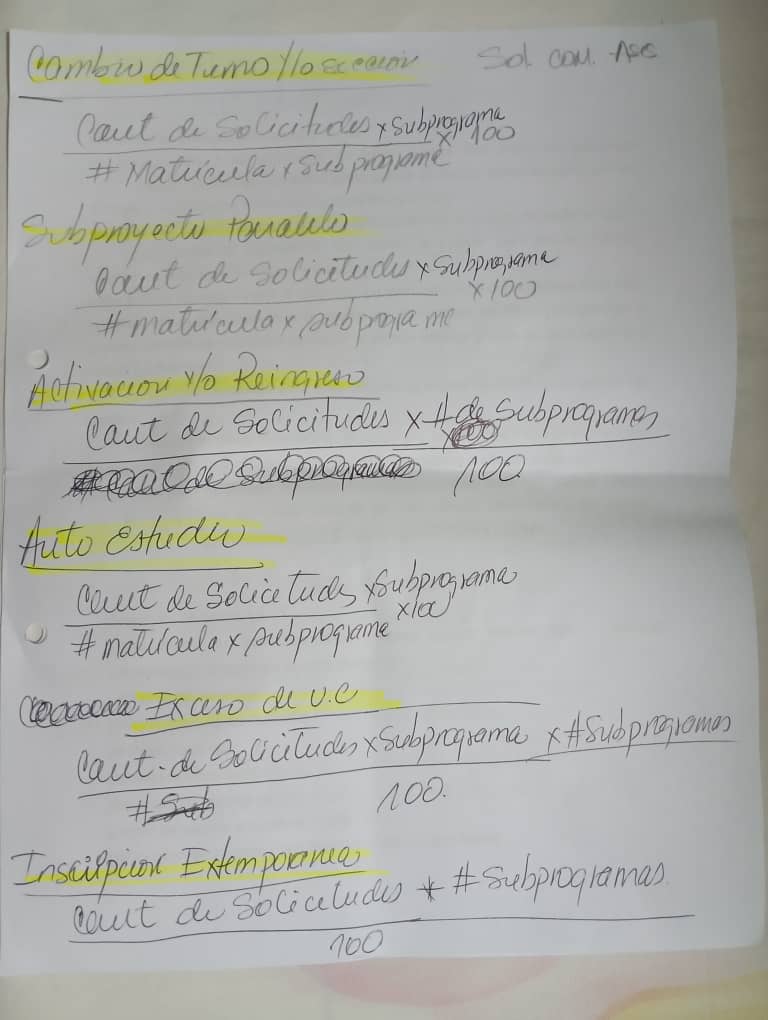 Cambio de Turno Y/o Sección Sol. Com. Ase
Cant de Solicitudes x Subprograma
x 100
# Matrícula x Subprograma
Subproyecto Paralelo
Cant de Solicitudes x Subprograma
x 100
# matrícula x subprograma
Activacion Y/o Reingreso
Cant de Solicitudes x # de Subprogramas
100
Auto Estudio
Cant de Solicitudes x Subprograma
x 100
# matrícula x subprograma
Exceso de U.C
Cant. de Solicitudes x Subprograma x # Subprogramas
# Sub 100.
Inscripcion Extemporanea
Cant de Solicitudes * # Subprogramas.
100